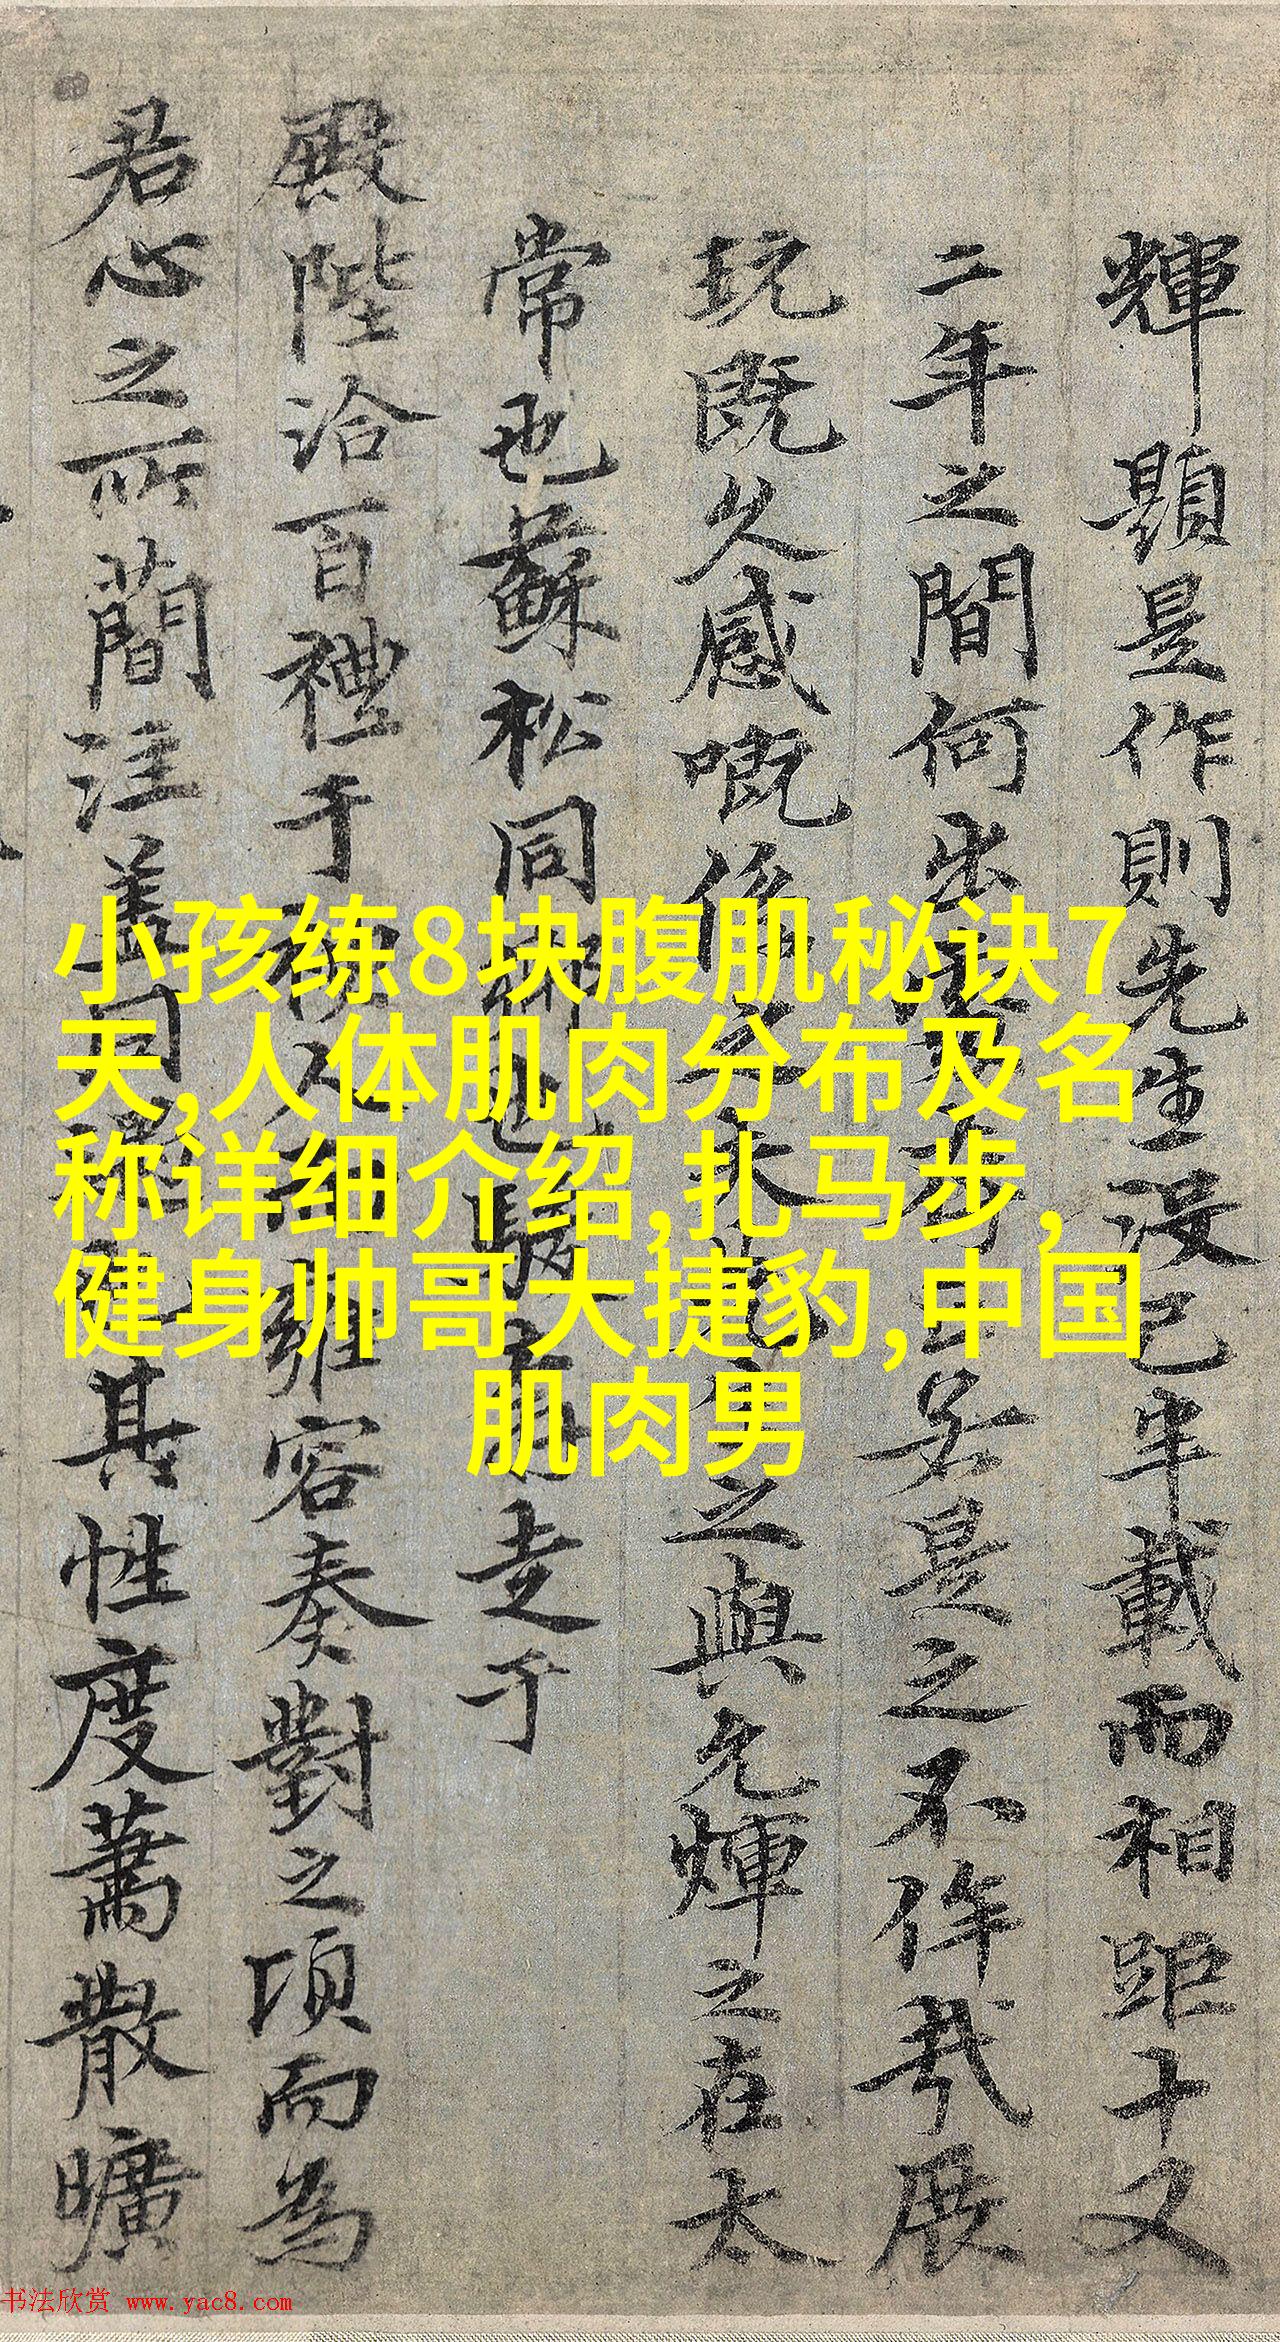 小孩练8块腹肌秘诀7
天,人体肌肉分布及名
称详细介绍,扎马步,
健身帅哥大捷豹,中国
肌肉男
輝顯是作則先生没已半載而相距十又
二年之間何出處存亡若是之不侔哉展
玩既久感嘅係之夫之與允煇之在太
常也蘇松同鄉也駿奔走于
殿陛洽百禮于人雍容奏對之頃而為
君心之所簡注盖同其性度蕭散曠
书法欣赏 www.yac8.com